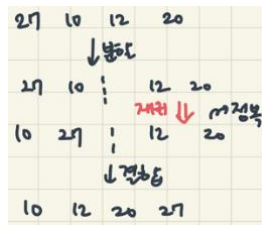 27 10 12 20
↓분할
27 10 ¦ 12 20
재귀 ⇓ 정복
10 27 ¦ 12 20
↓결합
10 12 20 27